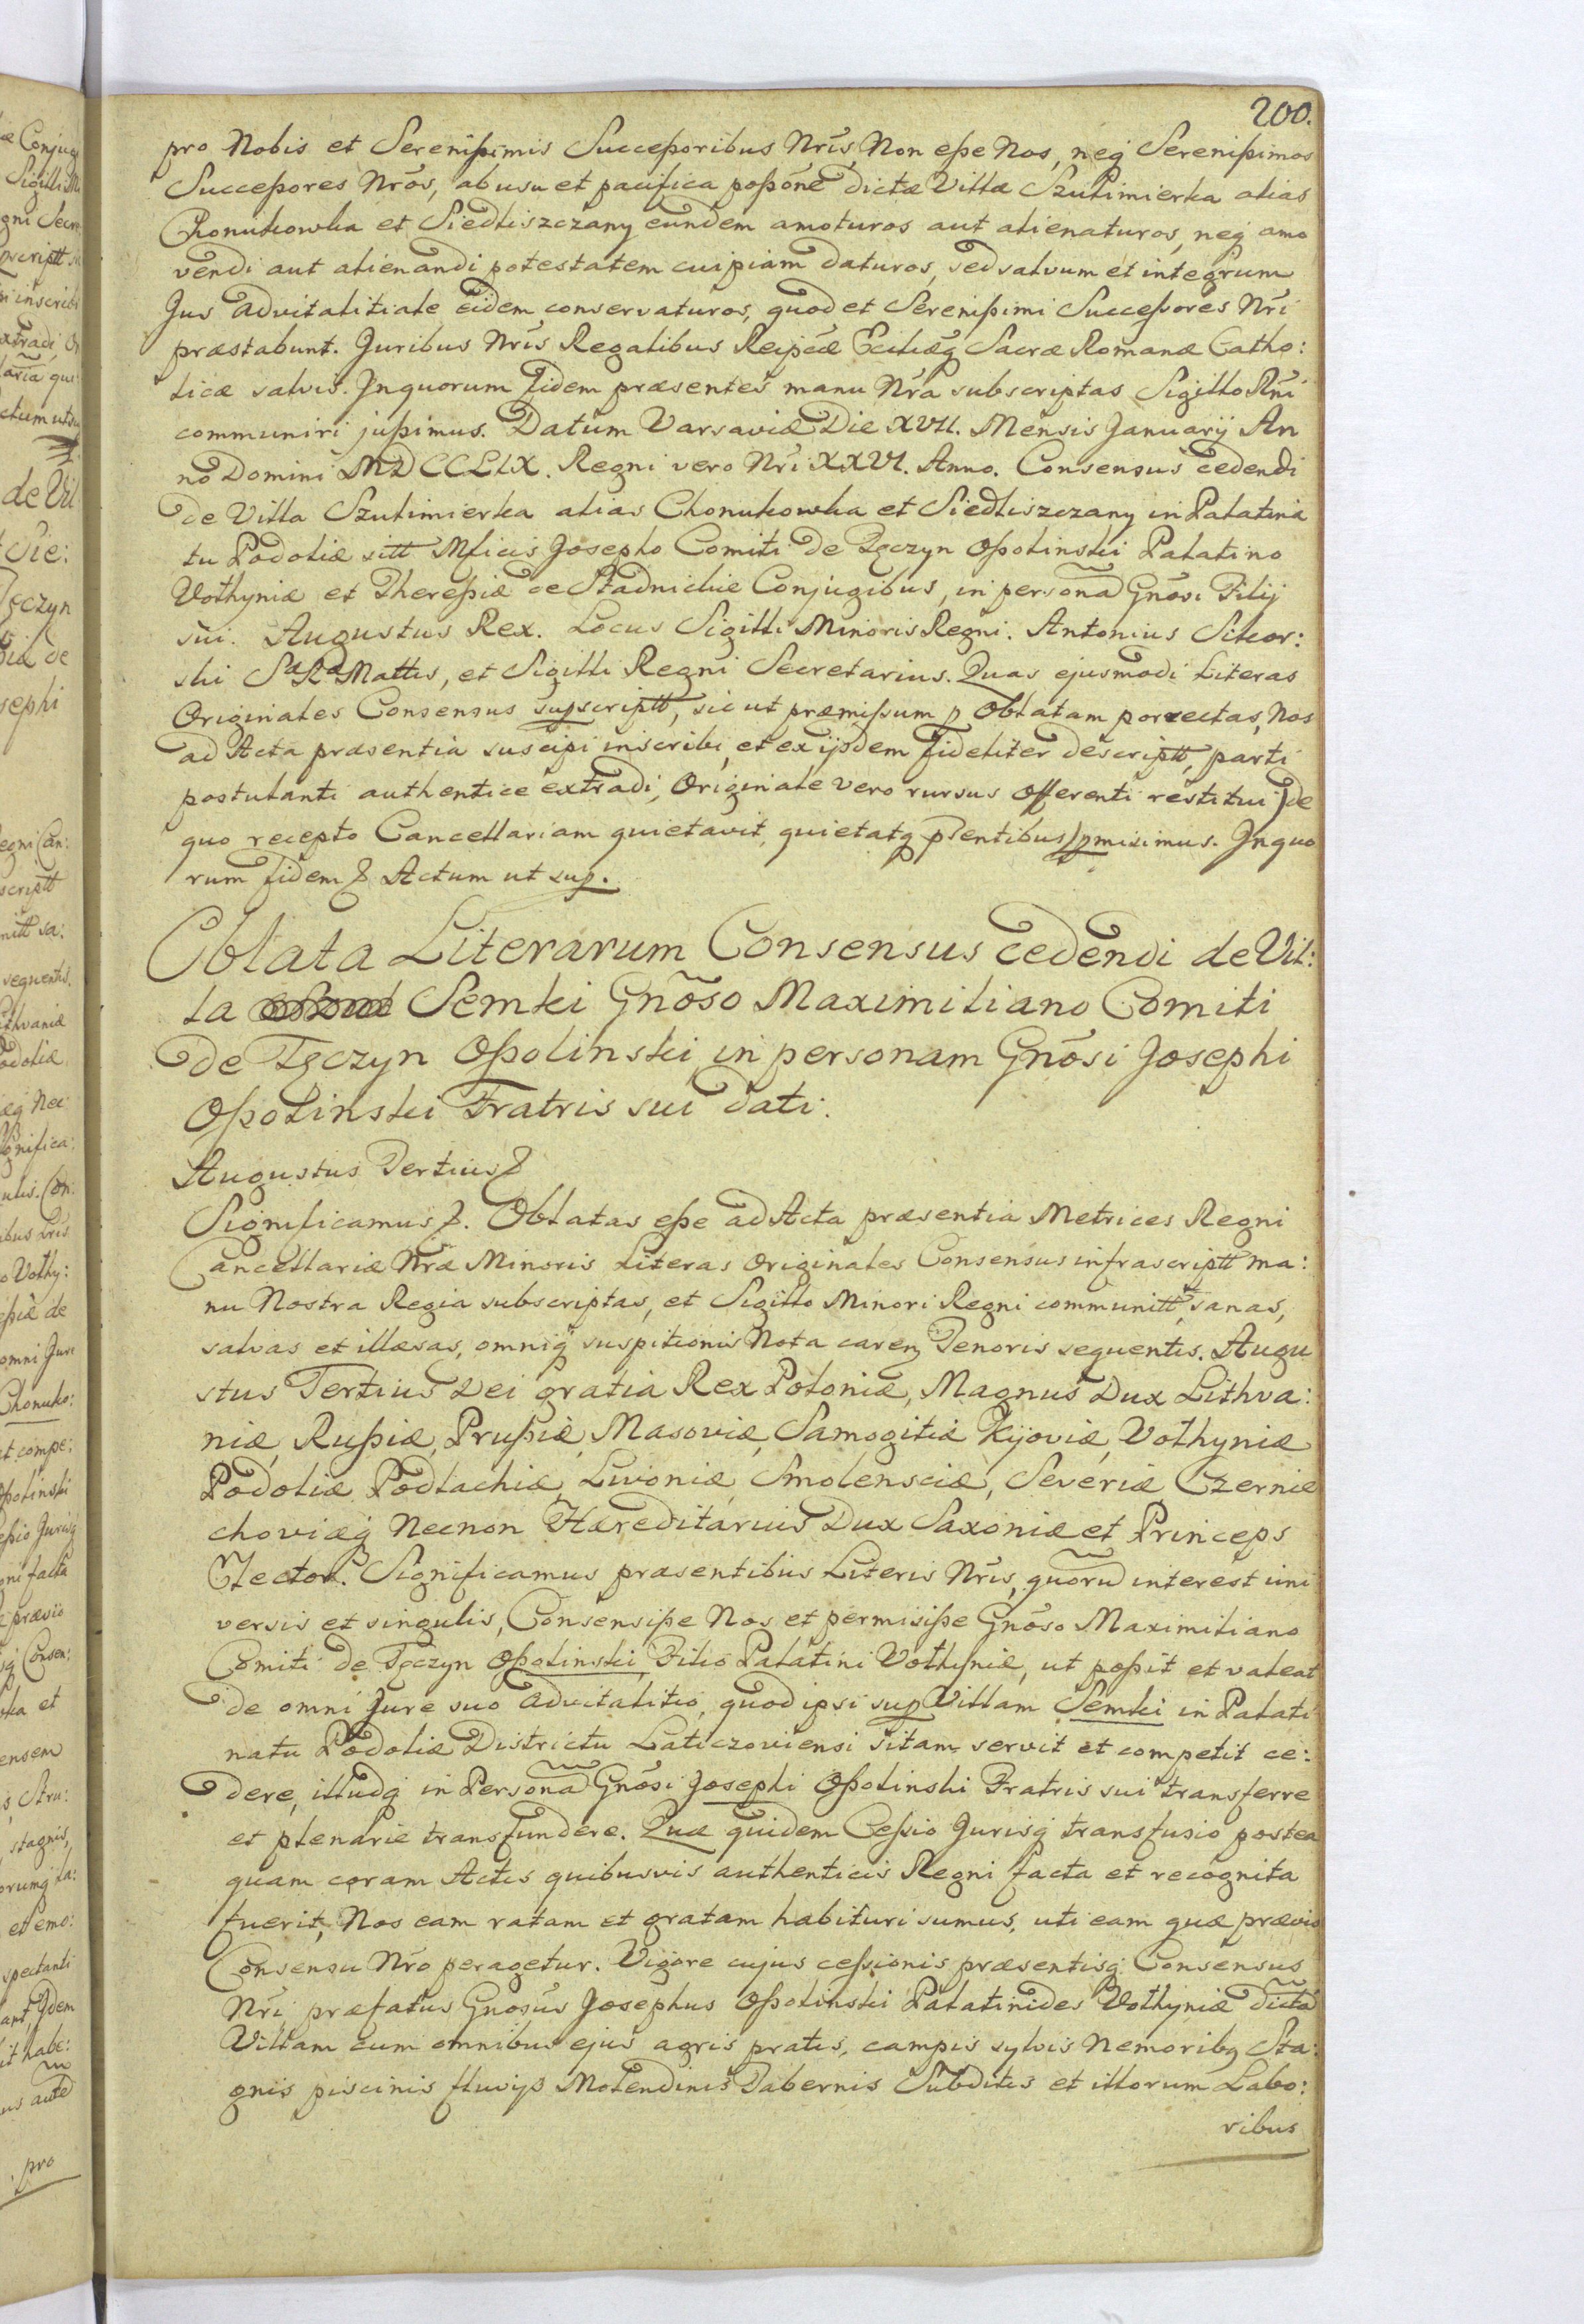 200.
pro Nobis et Serenißimis Succeßoribus Nr̃is Non eße Nos, neq Serenißimos
Succeßores Nr̃os, ab usu et pacifica poßõne dictæ Villæ Szulimierka alias
Chonukowka et Siedliszczany eundem amoturos aut alienaturos, neq amo
vendi aut alienandi potestatem cuipiam daturos, sed salvum et integrum
Jus advitalitiale eidem conservaturos, quod et Serenißimi Succeßores Nr̃i
præstabunt. Juribus Nr̃is Regalibus Reipcæ Ecclıæq Sacræ Romanæ Catho:
licæ salvis. In quorum fidem præsentes manu Nr̃a subscriptas Sigillo Rñi
communiri jußimus. Datum Varsaviæ Die XVII. Mensis Januarij An
no Domini MDCCLIX. Regni vero Nr̃i XXVI. Anno. Consensus cedendi
de Villa Szulimierka alias Chonukowka et Siedliszczany in Palatina
tu Podoliæ sitt Mficis Josepho Comiti de Tęczyn Oßolinski Palatino
Volhyniæ et Thereßiæ de Stadnickie Conjugibus, in persona͠ Gnõsi Filij
sui. Augustus Rex. Locus Sigilli Minoris Regni. Antonius Sikor:
ski S R Mattis, et Sigilli Regni Secretarius. Quas ejusmodi Literas
Originales Consensus supscriptt, sicut præmißum p Oblatam porrectas, Nos
ad Acta præsentia suscipi inscribi, et ex ijsdem fideliter descriptt, parti
postulanti authentice extradi, Originale vero rursus offerenti restitui) de
quo recepto Cancellariam quietavit, quietatq pſentibus) pmisimus. In quo
rum fidem & Actum ut sup.
Oblata Literarum Consensus cedendi de Vil:
la Semki Gnõso Maximiliano Comiti
de Tęczyn Oßolinski in personam Gnõsi Josephi
Oßolinski Fratris sui dati.
Augustus Tertius &
Significamus &. Oblatas eße ad Acta præsentia Metrices Regni
Cancellariæ Nr̃æ Minoris Literas Originales Consensus infrascriptt ma:
nu Nostra Regia subscriptas, et Sigillo Minori Regni communitt, sanas,
salvas et illæsas, omniq suspitionis Nota caren Tenoris sequentis. Augu
stus Tertius Dei gratia Rex Poloniæ, Magnus Dux Lithva:
niæ, Rußiæ, Prußiæ, Masoviæ, Samogitiæ Kijoviæ, Volhyniæ
Podoliæ Podlachiæ, Livoniæ, Smolensciæ, Severiæ Czernie
choviæq Necnon Hæreditarius Dux Saxoniæ et Princeps
Elector. Significamus præsentibus Literis Nr̃is, quoru͠ interest uni
versis et singulis, Consensiße Nos et permisiße Gnõso Maximiliano
Comiti de Tęczyn Oßolinski, Filio Palatini Volhyniæ, ut poßit et valeat
de omni Jure suo advitalitio, quod ipsi sup Villam Semki in Palati
natu Podoliæ Districtu Laticzoviensi sitam servit et competit ce:
dere, illudq in Persona͠ Gnõsi Josephi Oßolinski Fratris sui transferre
et plenarie transfundere. Quæ quidem Ceßio Jurisq transfusio postea
quam coram Actis quibusvis authenticis Regni facta et recognita
fuerit, Nos eam ratam et gratam habituri sumus, uti eam quæ prævio
Consensu Nr̃o peragetur. Vigore cujus ceßionis præsentisq Consensus
Nr̃i præfatus Gnosus Josephus Oßolinski Palatinides Volhyniæ dicta͠
Villam cum omnibus ejus agris pratis, campis sylvis Nemoribq Sta:
gnis piscinis fluvijs Molendinis Tabernis Subditis et illorum Labo:
ribus